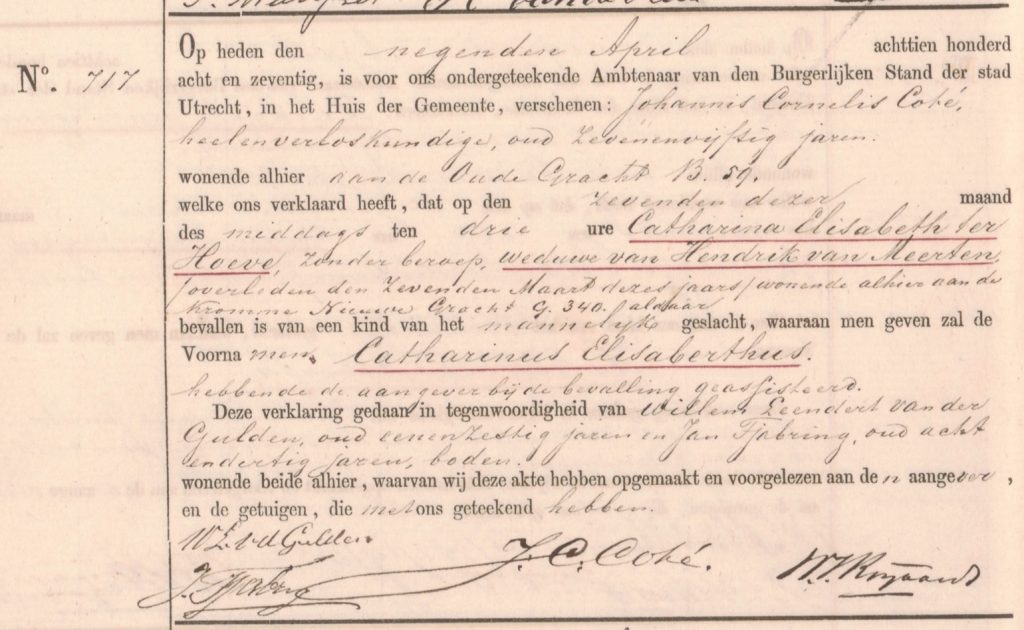 Op heden den negenden April achttien honderd
No. 717
acht en zeventig, is voor ons ondergeteekende Ambtenaar van den Burgerlijken Stand der stad
Utrecht, in het Huis der Gemeente, verschenen: Johannis Cornelis Coté,
heelenverloskundige, oud zevenenvijftig jaren.
wonende alhier aan de Oude Gracht B. 59.
welke ons verklaard heeft, dat op den zevenden dezer maand
des middags ten drie ure Catharina Elisabeth ter
Hoeve, zonder beroep, weduwe van Hendrik van Meerten,
/overleden den zevenden Maart dezes jaars/ wonende alhier aan de
Kromme Nieuwe Gracht G. 340. / aldaar
bevallen is van een kind van het mannelijk geslacht, waaraan men geven zal de
Voorna men. Catharinus Elisaberthus.
hebbende de aangever bij de bevalling geassisteerd.
Deze verklaring gedaan in tegenwoordigheid van Willem Leendert van der
Gulden, oud eenenzestig jaren en Jan Fjabring, oud acht
endertig jaren, boden.
wonende beide alhier, waarvan wij deze akte hebben opgemaakt en voorgelezen aan de n aangever,
en de getuigen, die met ons geteekend hebben.
W L v d Gulden
J. C. Coté.